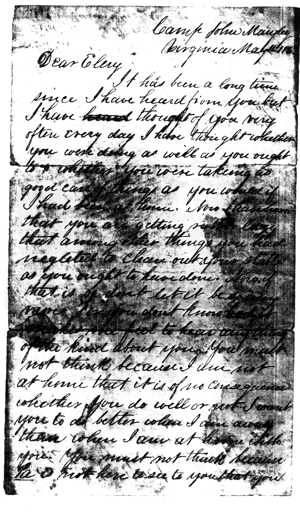 Camp John Mansfield
Virginia May
Dear Elery
It has been a long time
since I have heard from you but
I have heard thought of you very
often every day I have thought whether
you were doing as well as you ought
to & whether you were taking as
good care of things as you would if
I had been at home. Now
that you are getting
that among other things you had
neglected to clean out your
as you ought to have done. Now if
that is
You don't know
feel to hear any thing
of the kind about you. You must
not think because I am not
at home that it is of no consequence
whether you do well or not I want
you to do better when I am away
than when I am at home with
you. You must not think because
I'm not here to see to you that you